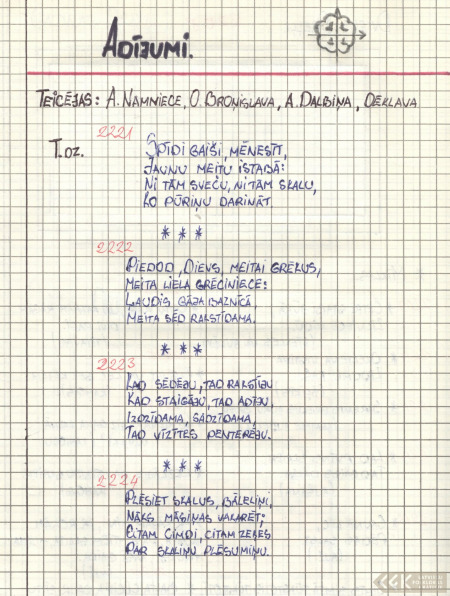 Adījumi.
Teicējas: A. Namniece, O. Broņislava, A. Dalbiņa, Dēklava
T. dz.
2221
Spīdi gaiši, mēnestiņ,
Jaunu meitu istabā:
Ni tām sveču, ni tām skalu,
Ko pūriņu darināt
* * *
2222
Piedod, Dievs, meitai grēkus,
Meita liela grēciniece:
Ļaudis gāja baznīcā
Meita sēd rakstīdama.
* * *
2223
Kad sēdēju, tad rakstīju
Kad staigāju, tad adīju.
Izdzīdama, sadzīdama,
Tad vīzītes penterēju.
* * *
2224
Plēsiet skalus, bāleliņi,
Nāks māsiņas vakarēt;
Citam cimdi, citam zeķes
Par skaliņu plēsumiņu.